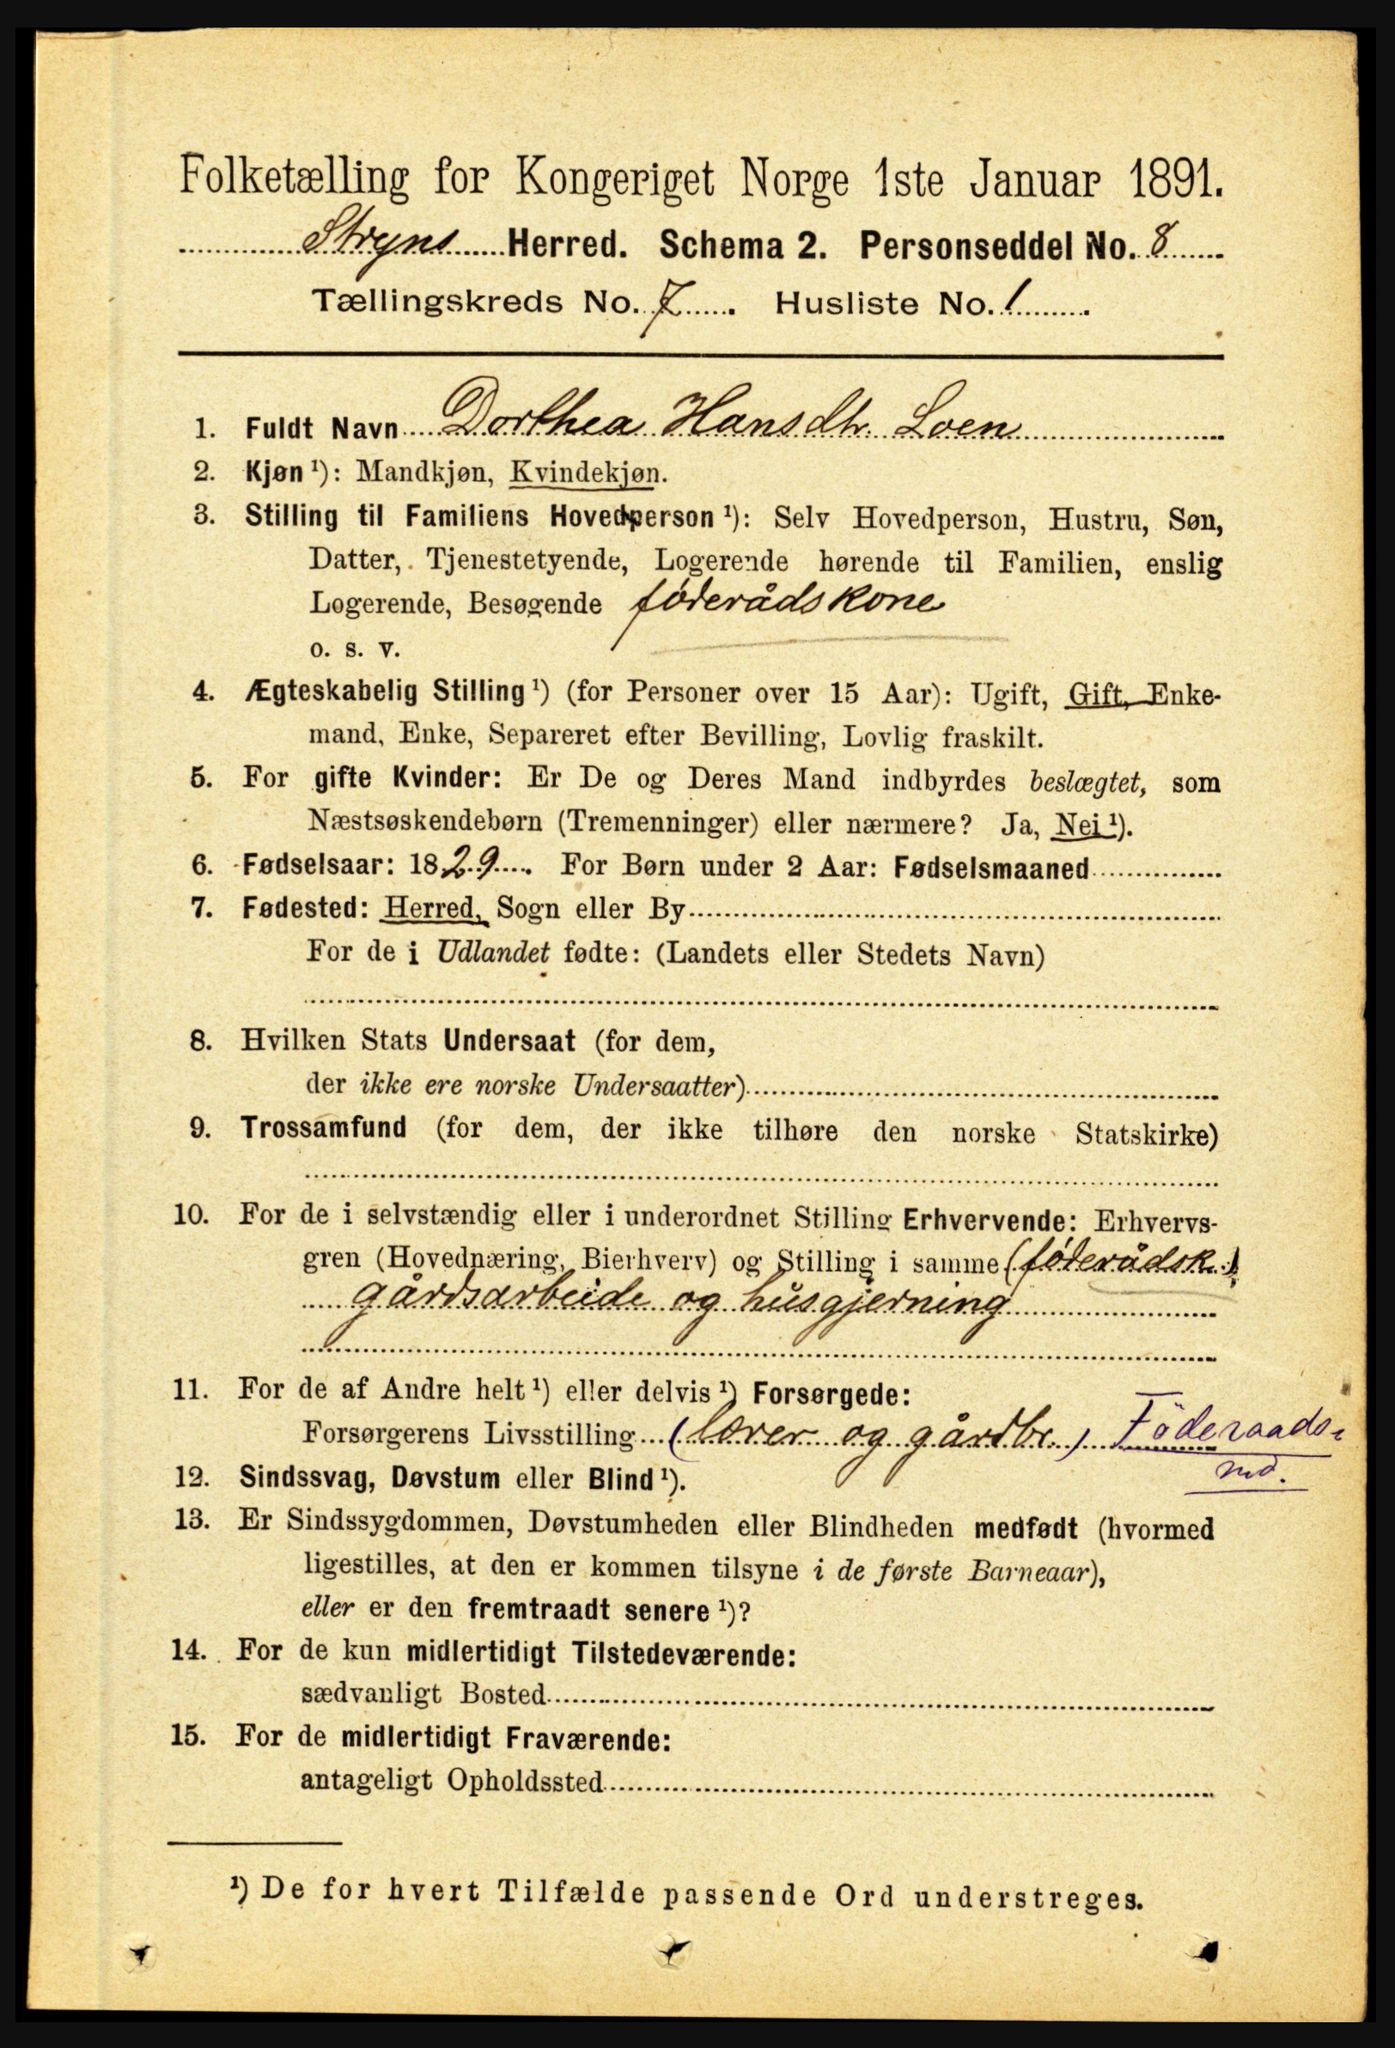 Folketælling for Kongeriget Norge 1ste Januar 1891.
Stryns Herred. Schema 2. Personseddel No. 8
Tællingskreds No. 7. Husliste No. 1
1. Fuldt Navn Dorthea Hansdtr. Loen
2. Kjøn ¹): Mandkjøn, Kvindekjøn.
3. Stilling til Familiens Hovedperson ¹): Selv Hovedperson, Hustru, Søn,
Datter, Tjenestetyende, Logerende hørende til Familien, enslig
Logerende, Besøgende føderådskone
o. s. v.
4. Ægteskabelig Stilling ¹) (for Personer over 15 Aar): Ugift, Gift, Enke-
mand, Enke, Separeret efter Bevilling, Lovlig fraskilt.
5. For gifte Kvinder: Er De og Deres Mand indbyrdes beslægtet, som
Næstsøskendebørn (Tremenninger) eller nærmere? Ja, Nei ¹).
6. Fødselsaar: 1829. For Børn under 2 Aar: Fødselsmaaned
7. Fødested: Herred, Sogn eller By
For de i Udlandet fødte: (Landets eller Stedets Navn)
8. Hvilken Stats Undersaat (for dem,
der ikke ere norske Undersaatter)
9. Trossamfund (for dem, der ikke tilhøre den norske Statskirke)
10. For de i selvstændig eller i underordnet Stilling Erhvervende: Erhvervs-
gren (Hovednæring, Bierhverv) og Stilling i samme (føderådsk.)
gårdsarbeide og husgjerning
11. For de af Andre helt ¹) eller delvis ¹) Forsørgede:
Forsørgerens Livsstilling (lærer og gårdbr.) Føderaads-
md.
12. Sindssvag, Døvstum eller Blind ¹).
13. Er Sindssygdommen, Døvstumheden eller Blindheden medfødt (hvormed
ligestilles, at den er kommen tilsyne i de første Barneaar),
eller er den fremtraadt senere ¹)?
14. For de kun midlertidigt Tilstedeværende:
sædvanligt Bosted
15. For de midlertidigt Fraværende:
antageligt Opholdssted
¹) De for hvert Tilfælde passende Ord understreges.